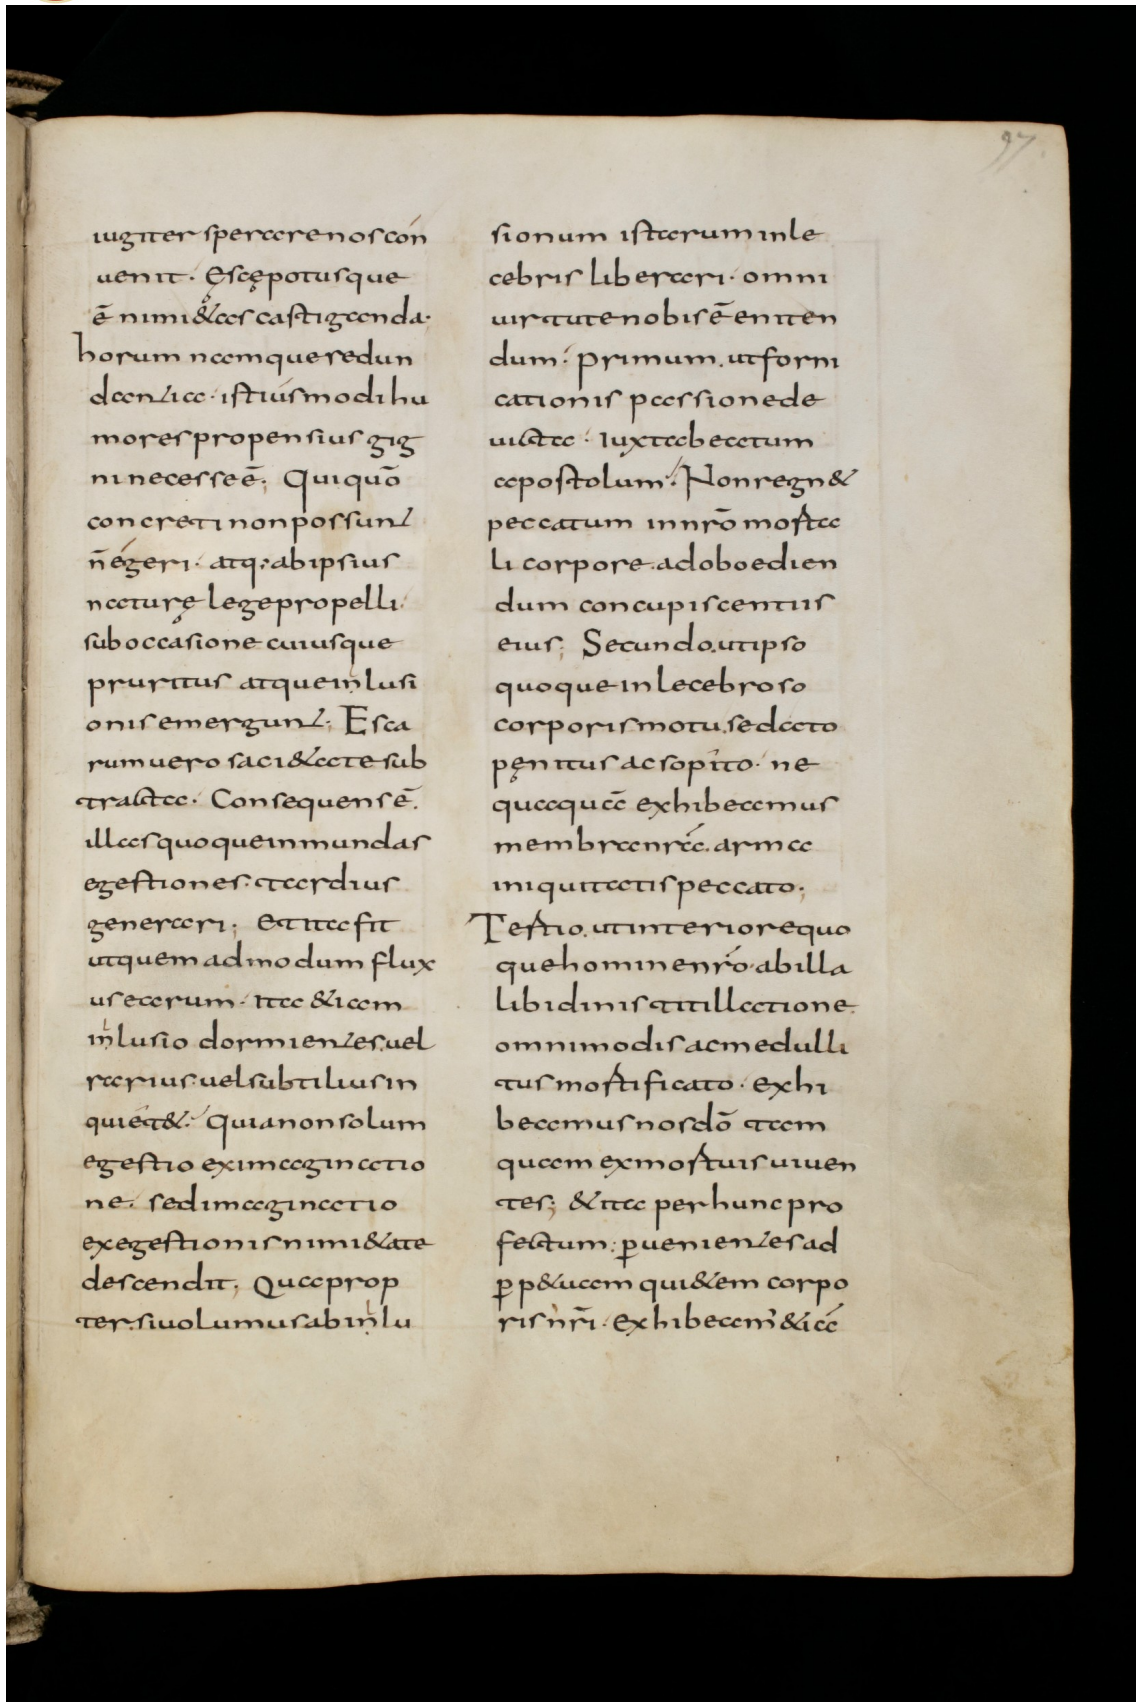 97
iugiter sperare nos con
uenit · Escę potusque
ē nimi&as castiganda ·
horum namque redun
dantia · istiusmodi hu
mores propensius gig
ni necesse ē ; Qui quō
concreti non possunt
n̄ egeri · atq: ab ipsius
naturę lege propelli ·
sub occasione cuiusque
pruritus atque inlusi
onis emergunt ; Esca
rum uero saci&ate sub
tracta · Consequens ē .
illas quoque inmundas
egestiones · tardius
generari ; et ita fit
ut quem ad modum flux
us earum · ita &iam
inlusio dormientes uel
rarius uel subtilius in
quiet& · Quia non solum
egestio ex imaginatio
ne · sed imaginatio
ex egestionis nimi&ate
descendit ; Qua prop
ter · si uolumus ab inlu
sionum istarum inle
cebris liberari · omni
uirtute nobis ē eniten
dum · primum . ut forni
cationis passione de
uicta · iuxta beatum
apostolum · Non regn&
peccatum in nr̄o morta
li corpore . ad oboedien
dum concupiscentiis
eius ; Secundo . ut ipso
quoque inlecebroso
corporis motu . sedato
pęnitus ac sopito · ne
quaquā exhibeamus
membra nr̄a . arma
iniquitatis peccato ;
Tertio . ut interiore quo
que homine nr̄o · ab illa
libidinis titillatione .
omnimodis ac medulli
tus mortificato · exhi
beamus nos dō tam
quam ex mortuis uiuen
tes ; & ita per hunc pro
fectum : ꝑuenientes ad
ꝑp&uam qui&em corpo
ris nr̄i · exhibeam' &iā